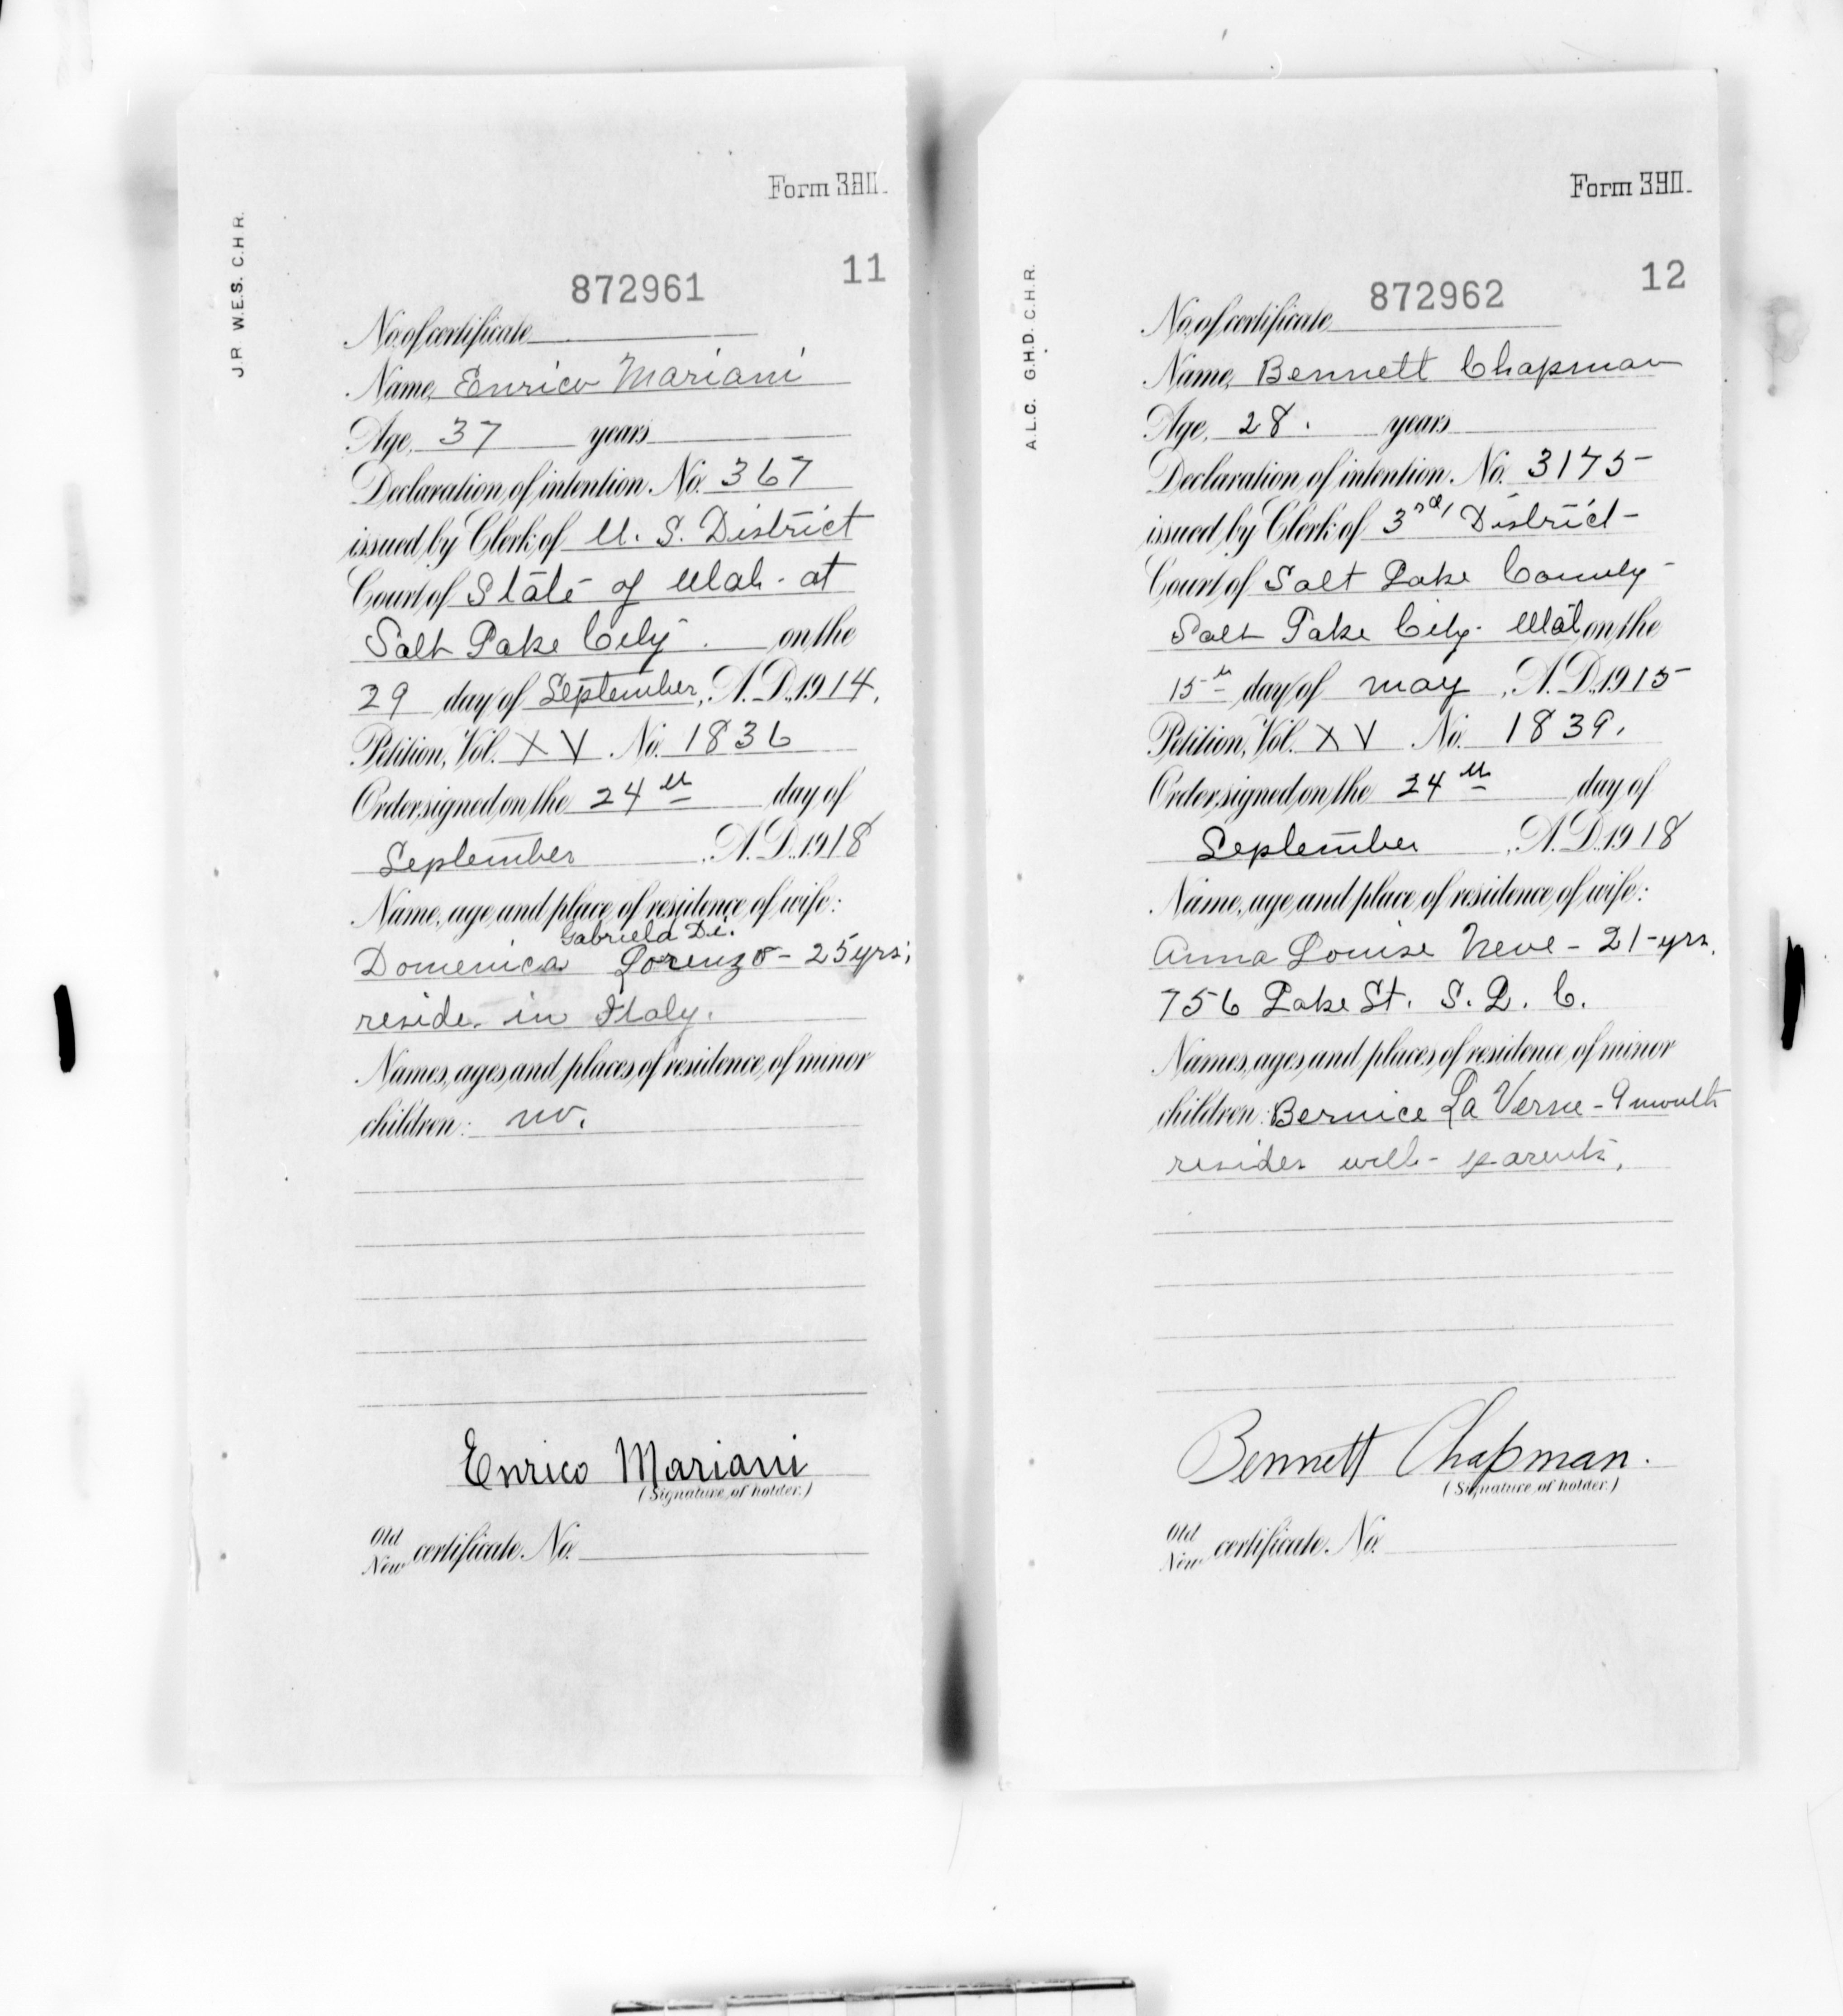 J.R. W.E.S. C.H.R.
Form 390.
11
872961
No. of certificate
Name, Enrico Mariani
Age, 37 years
Declaration of intention No. 367
issued by Clerk of U. S. District
Court of State of Utah - at
Salt Lake City on the
29 day of September, A. D. 1914.
Petition, Vol. XV No. 1836
Order signed on the 24th day of
September, A. D. 1918
Name, age and place of residence of wife:
Gabriela Di.
Domenica Lorenzo - 25 yrs;
reside in Italy.
Names, ages and places of residence of minor
children: no.
Enrico Mariani
(Signature of holder.)
Old
New certificate No.
A.L.C. G.H.D. C.H.R.
Form 390.
12
872962
No. of certificate
Name, Bennett Chapman
Age, 28. years
Declaration of intention No. 3175
issued by Clerk of 3rd District
Court of Salt Lake County
Salt Lake City. Utah on the
15th day of May, A. D. 1915
Petition, Vol. XV No. 1839.
Order signed on the 24th day of
September, A. D. 1918
Name, age and place of residence of wife:
Anna Louise Neve - 21 yrs.
756 Lake St. S. L. C.
Names, ages and places of residence of minor
children: Bernice La Verne - 9 months
resides with parents.
Bennett Chapman.
(Signature of holder.)
Old
New certificate No.